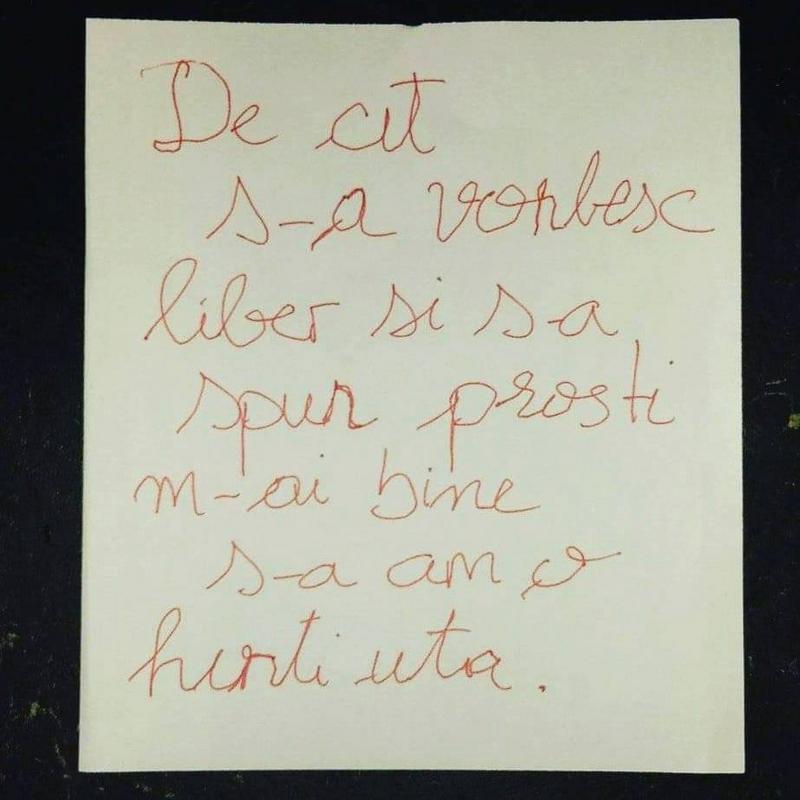 De cit
s-a vorbesc
liber si s-a
spun prosti
m-ai bine
s-a am o
hirti uta.